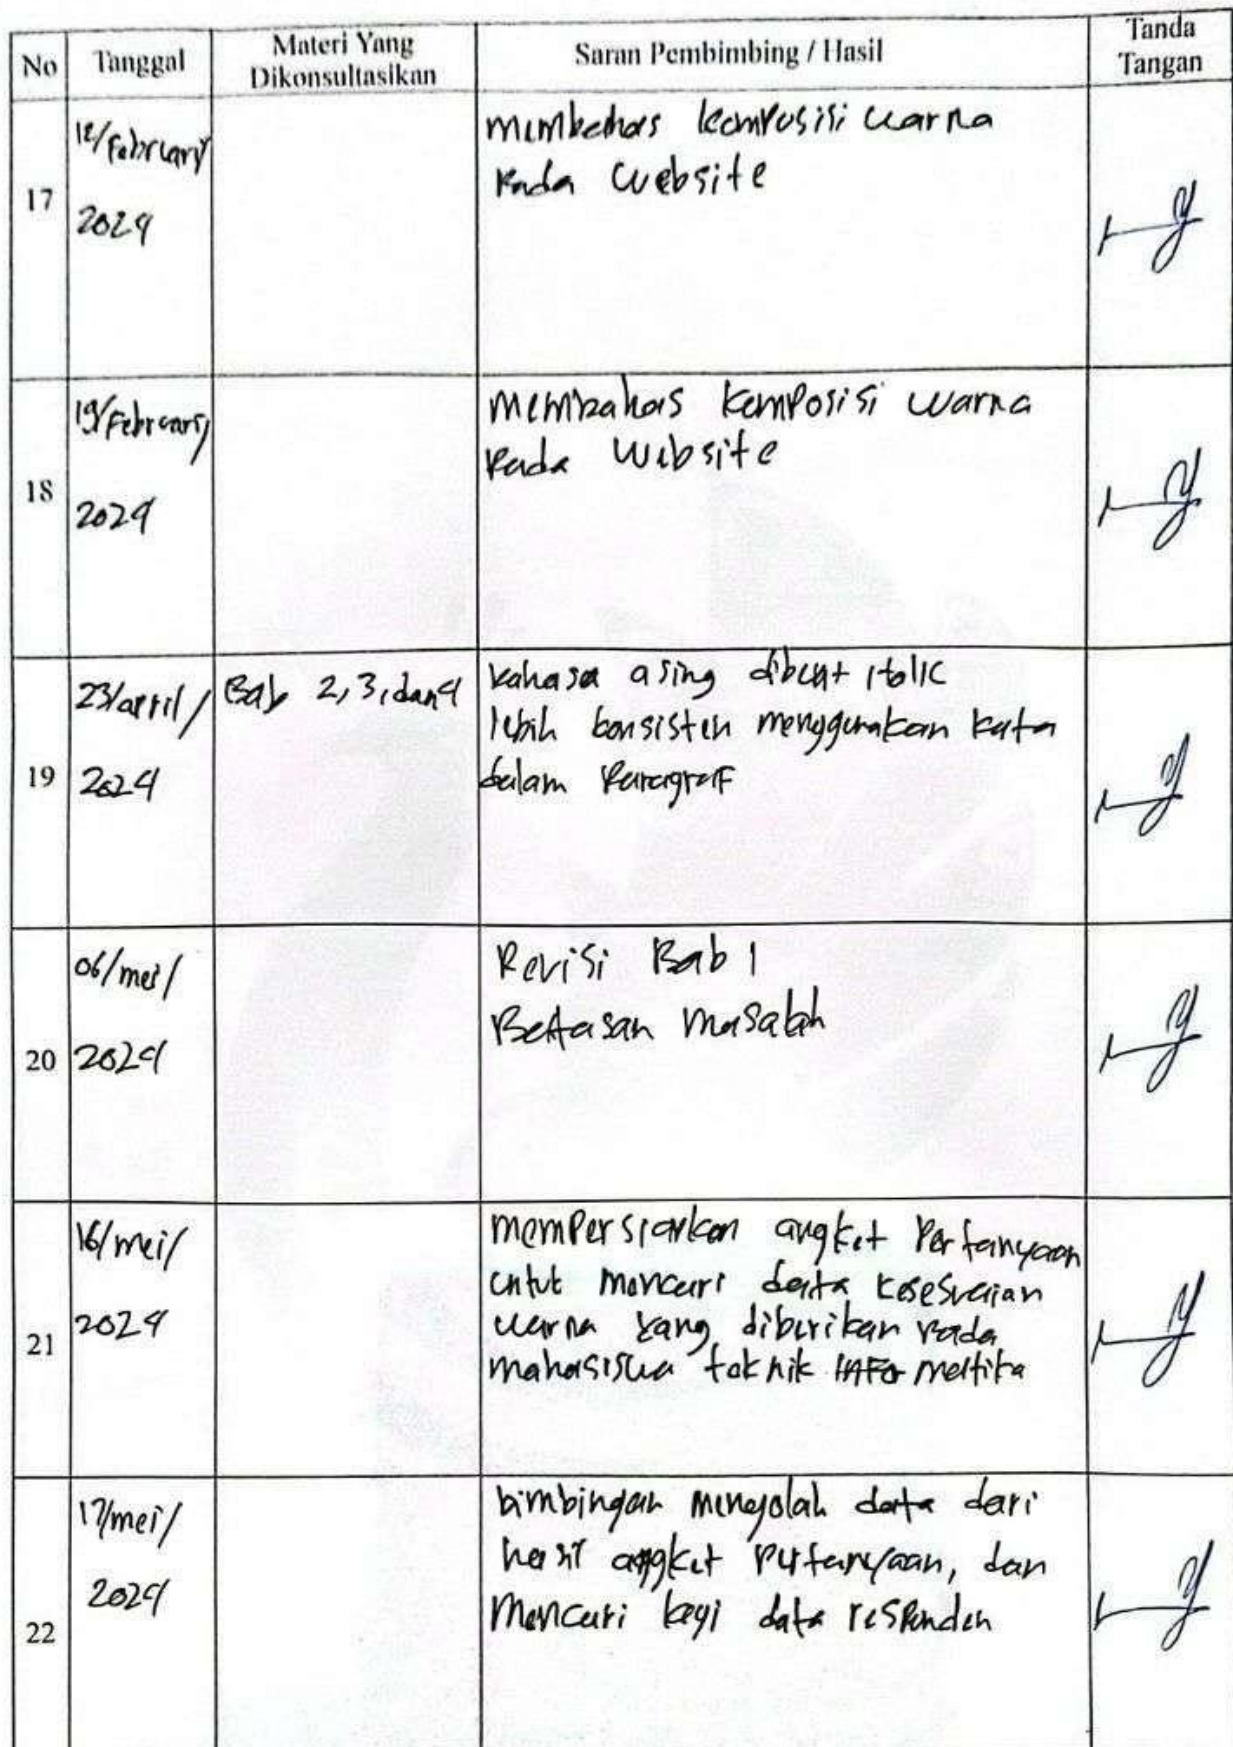 No Tanggal Materi Yang Dikonsultasikan Saran Pembimbing / Hasil Tanda Tangan
17
/February
2024
membahas komposisi warna
pada website
18
19/February
2024
membahas komposisi warna
pada website
19
23/april/
2024
Bab 2, 3, dan 4
bahasa asing dibuat italic
lebih konsisten menggunakan kata
dalam Paragraf
20
06/mei/
2024
Revisi Bab 1
Batasan masalah
21
16/mei/
2024
mempersiapkan angket Pertanyaan
untuk mencari data kesesuaian
warna yang diberikan pada
mahasiswa teknik informatika
22
17/mei/
2024
bimbingan mengolah data dari
hasil angket pertanyaan, dan
Mencari lagi data responden